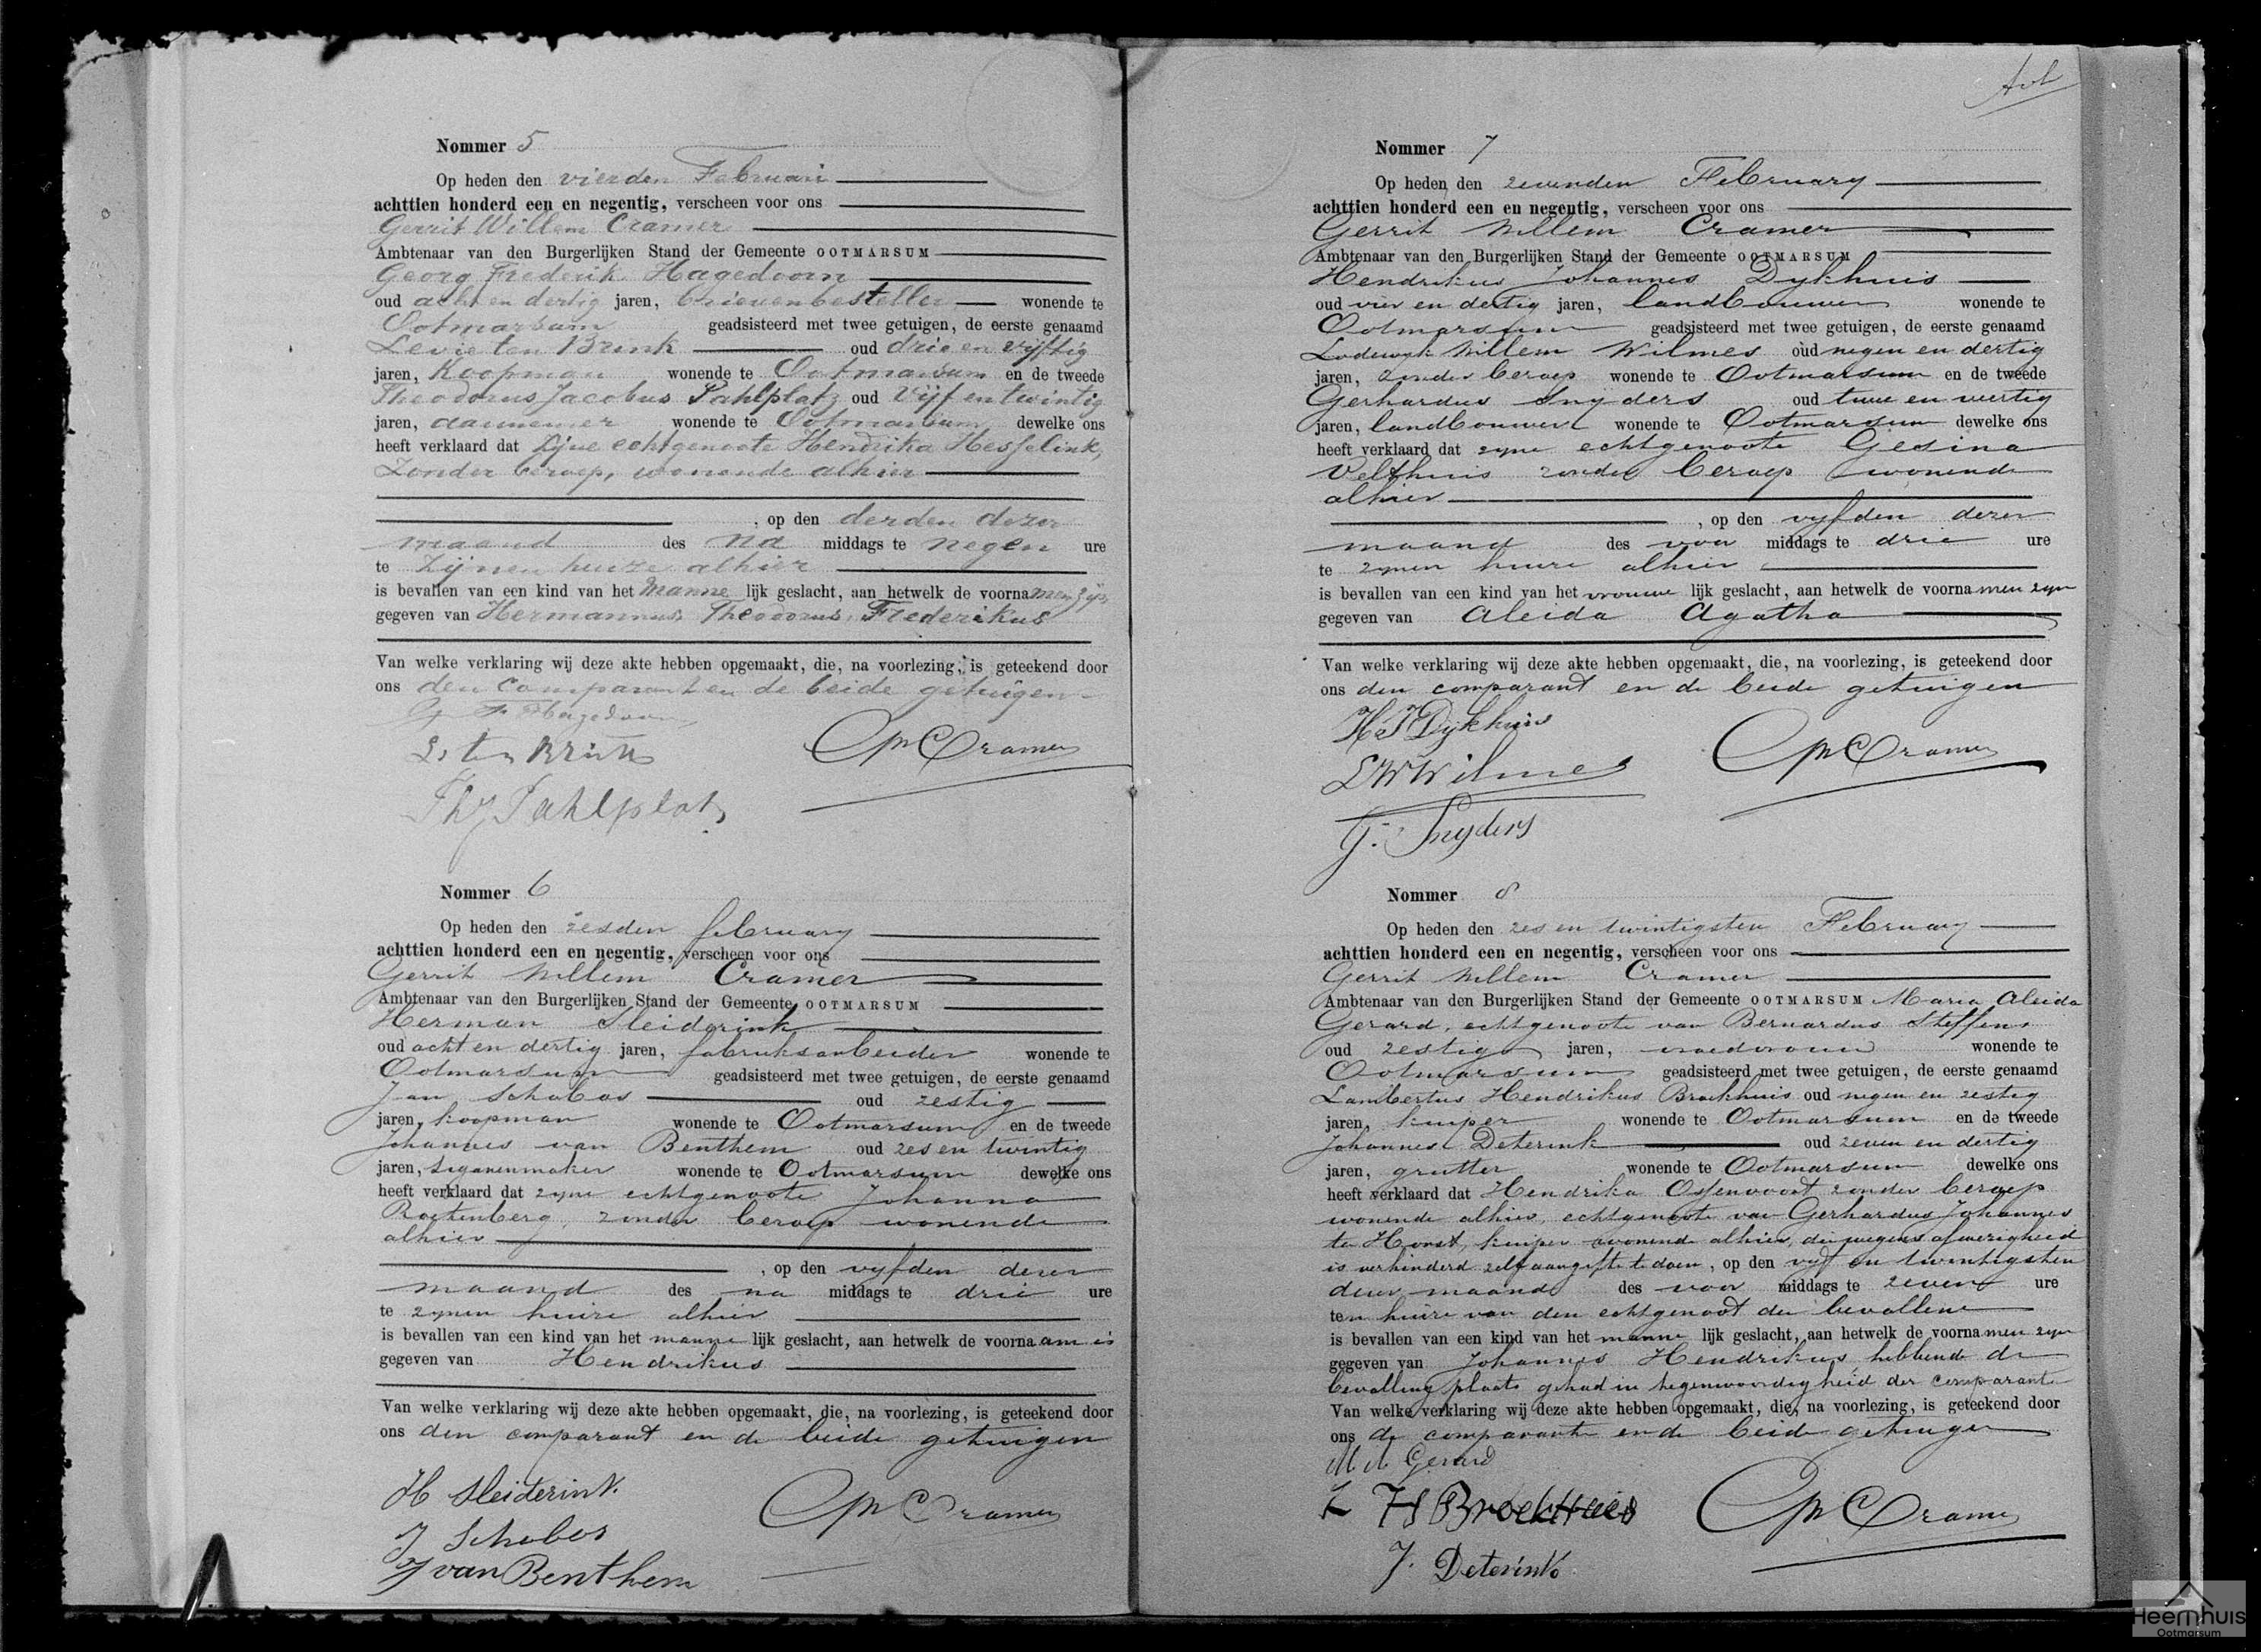 Nommer 5
Op heden den vierden Februari
achttien honderd een en negentig, verscheen voor ons
Gerrit Willem Cramer
Ambtenaar van den Burgerlijken Stand der Gemeente OOTMARSUM
Georg Frederik Hagedoorn
oud acht en dertig jaren, brievenbesteller wonende te
Ootmarsum geadsisteerd met twee getuigen, de eerste genaamd
Levie ten Brink oud drie en vijftig
jaren, Koopman wonende te Ootmarsum en de tweede
Theodorus Jacobus Pahlplatz oud Vijf en twintig
jaren, aannemer wonende te Ootmarsum dewelke ons
heeft verklaard dat zijne echtgenoote Hendrika Hesselink,
Zonder beroep, wonende alhier
, op den derden dezer
maand des na middags te negen ure
te Zijnen huize alhier
is bevallen van een kind van het manne lijk geslacht, aan hetwelk de voornamen zijn
gegeven van Hermannus Theodorus Frederikus
Van welke verklaring wij deze akte hebben opgemaakt, die, na voorlezing, is geteekend door
ons den comparant en de beide getuigen
G F Hagedoorn
L. ten Brink
GW Cramer
Th J Pahlplatz
Nommer 6
Op heden den zesden february
achttien honderd een en negentig, verscheen voor ons
Gerrit Willem Cramer
Ambtenaar van den Burgerlijken Stand der Gemeente OOTMARSUM
Herman Sleiderink
oud acht en dertig jaren, fabrieksarbeider wonende te
Ootmarsum geadsisteerd met twee getuigen, de eerste genaamd
Jan Schobos oud zestig
jaren, koopman wonende te Ootmarsum en de tweede
Johannes van Benthem oud zes en twintig
jaren, sigarenmaker wonende te Ootmarsum dewelke ons
heeft verklaard dat zyne echtgenoote Johanna
zonder beroep wonende
alhier
, op den vyfden dezer
maand des na middags te drie ure
te zynen huize alhier
is bevallen van een kind van het manne lijk geslacht, aan hetwelk de voornaam is
gegeven van Hendrikus
Van welke verklaring wij deze akte hebben opgemaakt, die, na voorlezing, is geteekend door
ons den comparant en de beide getuigen
H Sleiderink.
GW Cramer
J Schobos
J van Benthem
Nommer 7
Op heden den zevenden February
achttien honderd een en negentig, verscheen voor ons
Gerrit Willem Cramer
Ambtenaar van den Burgerlijken Stand der Gemeente OOTMARSUM
Hendrikus Johannes Dykhuis
oud vier en dertig jaren, landbouwer wonende te
Ootmarsum geadsisteerd met twee getuigen, de eerste genaamd
Lodewyk Willem Wilmes oud negen en dertig
jaren, zonder beroep wonende te Ootmarsum en de tweede
Gerhardus Snyders oud twee en veertig
jaren, landbouwer wonende te Ootmarsum dewelke ons
heeft verklaard dat zyne echtgenoote Gesina
Velthuis zonder beroep wonende
alhier
, op den vyfden dezer
maand des voor middags te drie ure
te zynen huize alhier
is bevallen van een kind van het vrouwe lijk geslacht, aan hetwelk de voornamen zyn
gegeven van Aleida Agatha
Van welke verklaring wij deze akte hebben opgemaakt, die, na voorlezing, is geteekend door
ons den comparant en de beide getuigen
H J Dykhuis
GW Cramer
L W Wilmes
G. Snyders
Nommer 8
Op heden den zes en twintigsten February
achttien honderd een en negentig, verscheen voor ons
Gerrit Willem Cramer
Ambtenaar van den Burgerlijken Stand der Gemeente OOTMARSUM Maria Aleida
Gerard, echtgenoote van Bernardus Steffens
oud zestig jaren, vroedvrouw wonende te
Ootmarsum geadsisteerd met twee getuigen, de eerste genaamd
Lambertus Hendrikus Broekhuis oud negen en zestig
jaren, kuiper wonende te Ootmarsum en de tweede
Johannes Deterink oud zeven en dertig
jaren, grutter wonende te Ootmarsum dewelke ons
heeft verklaard dat Hendrika Ossenvoort zonder beroep
wonende alhier, echtgenoote van Gerhardus Johannes
ter Horst, kuiper wonende alhier, die wegens afwezigheid
is verhinderd zelf aangifte te doen, op den vyf en twintigsten
dezer maand des voor middags te zeven ure
ten huize van den echtgenoot der bevallene
is bevallen van een kind van het manne lijk geslacht, aan hetwelk de voornamen zyn
gegeven van Johannes Hendrikus, hebbende de
bevalling plaats gehad in tegenwoordigheid der comparante
Van welke verklaring wij deze akte hebben opgemaakt, die, na voorlezing, is geteekend door
ons de comparante en de beide getuigen
M A Gerard
L H Broekhuis
GW Cramer
J. Deterink
Heemhuis
Ootmarsum